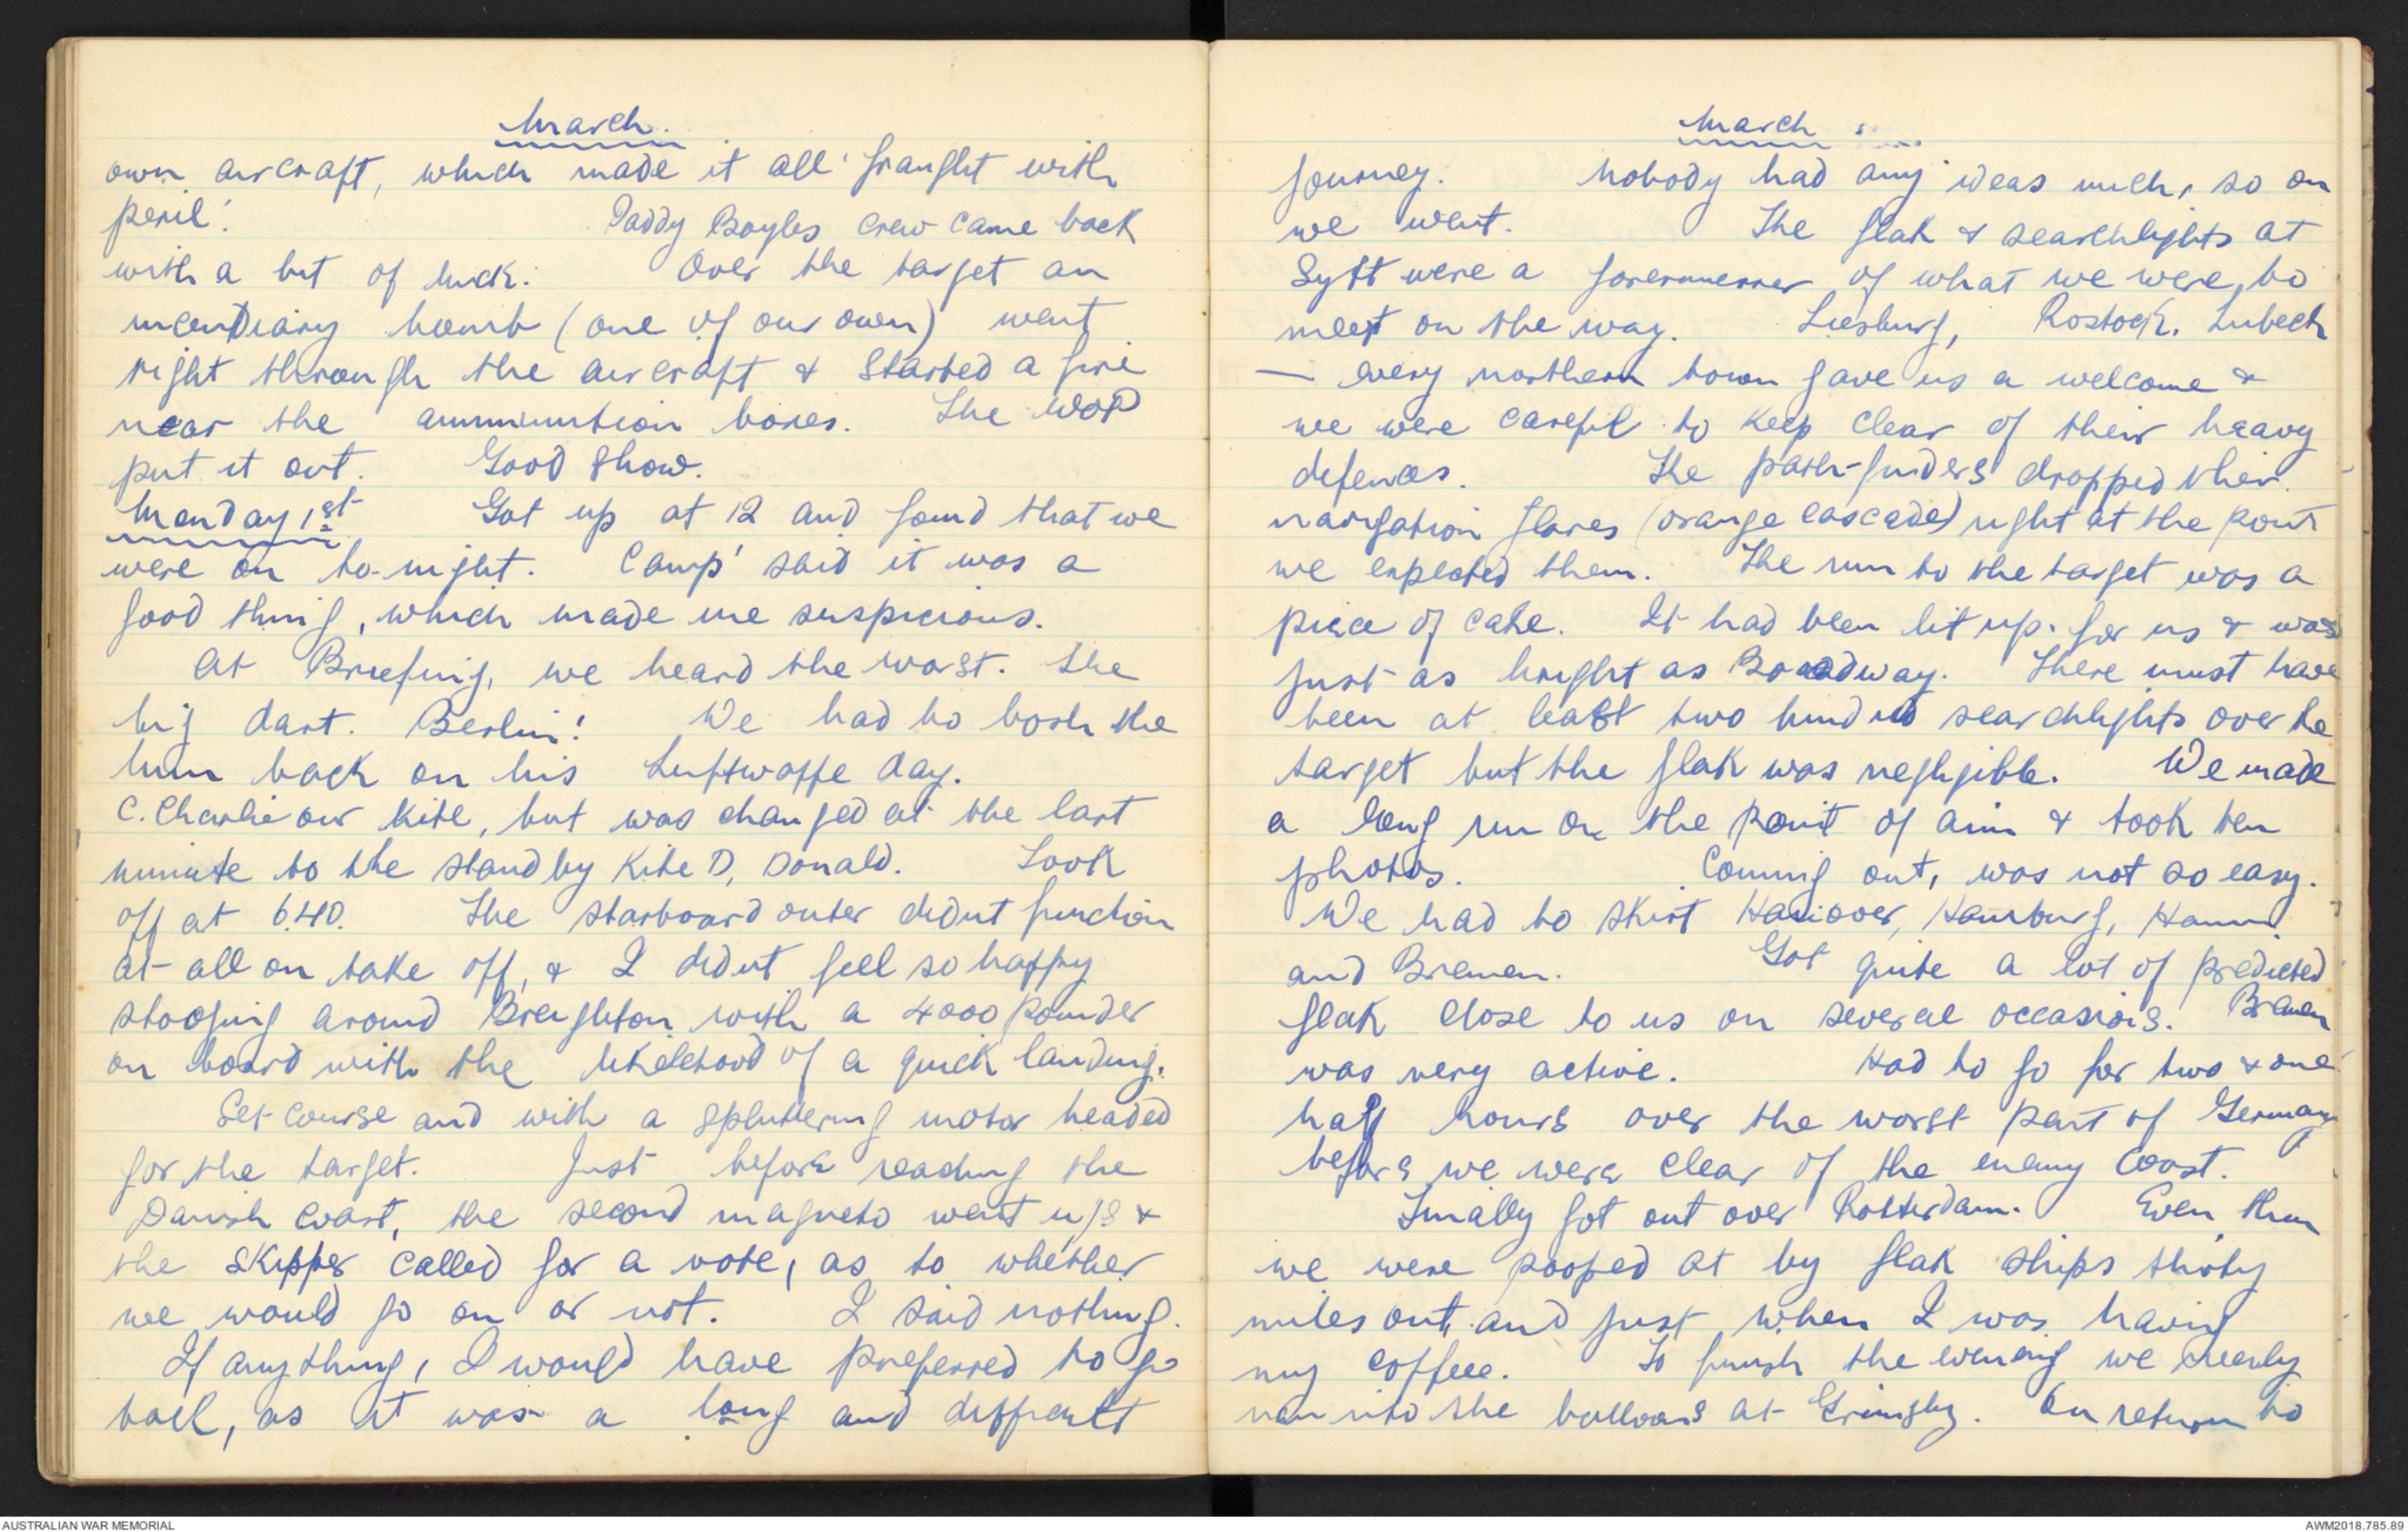 March.
own aircraft, which made it all 'fraught with
peril'. Paddy Boyles crew came back
with a bit of luck. Over the target an
incendiary bomb (one of our own) went
right through the aircraft & started a fire
near the ammunition boxes. The WOP
put it out. Good show.
Monday, 1st Got up at 12 and found that we
were on to-night. 'Camp' said it was a
good thing, which made me suspicious.
At Briefing, we heard the worst. The
big dart. Berlin! We had to bosh the
hun back on his Luftwaffe day.
C. Charlie our kite, but was changed at the last
minute to the standby kite D, Donald. Took
off at 6.40. The starboard outer didnt function
at all on take off, & I didnt feel so happy
stooging around Breighton with a 4000 pounder
on board with the likelehood of a quick landing.
Set course and with a spluttering motor headed
for the target. Just before reaching the
Danish coast, the second magneto went u/s &
the skipper called for a vote, as to whether
we would go on or not. I said nothing.
If anything, I would have preferred to go
back, as it was a long and difficult
March
journey. Nobody had any ideas much, so on
we went. The flak & searchlights at
Sylt were a forerunner of what we were to
meet on the way. Rostock. Lubeck
— every northern town gave us a welcome &
we were careful to keep clear of their heavy
defences. The path-finders dropped their
navigation flares (orange cascade) right at the point
we expected them. The run to the target was a
piece of cake. It had been lit up for us & was
just as bright as Broadway. There must have
been at least two hundred searchlights over the
target but the flak was negligible. We made
a long run on the point of aim & took ten
photos. Coming out, was not so easy.
We had to skirt Hanover, Hamburg, Hamm
and Bremen. Got quite a lot of predicted
flak close to us on several occasions. Bremen
was very active. Had to go for two & one
half hours over the worst part of Germany
before we were clear of the enemy coast.
Finally got out over Rotterdam. Even then
we were pooped at by flak ships thirty
miles out, and just when I was having
my coffee. To finish the evening we nearly
ran into the balloons at Grimsby. On return to
AUSTRALIAN WAR MEMORIAL
AWM2018.785.89